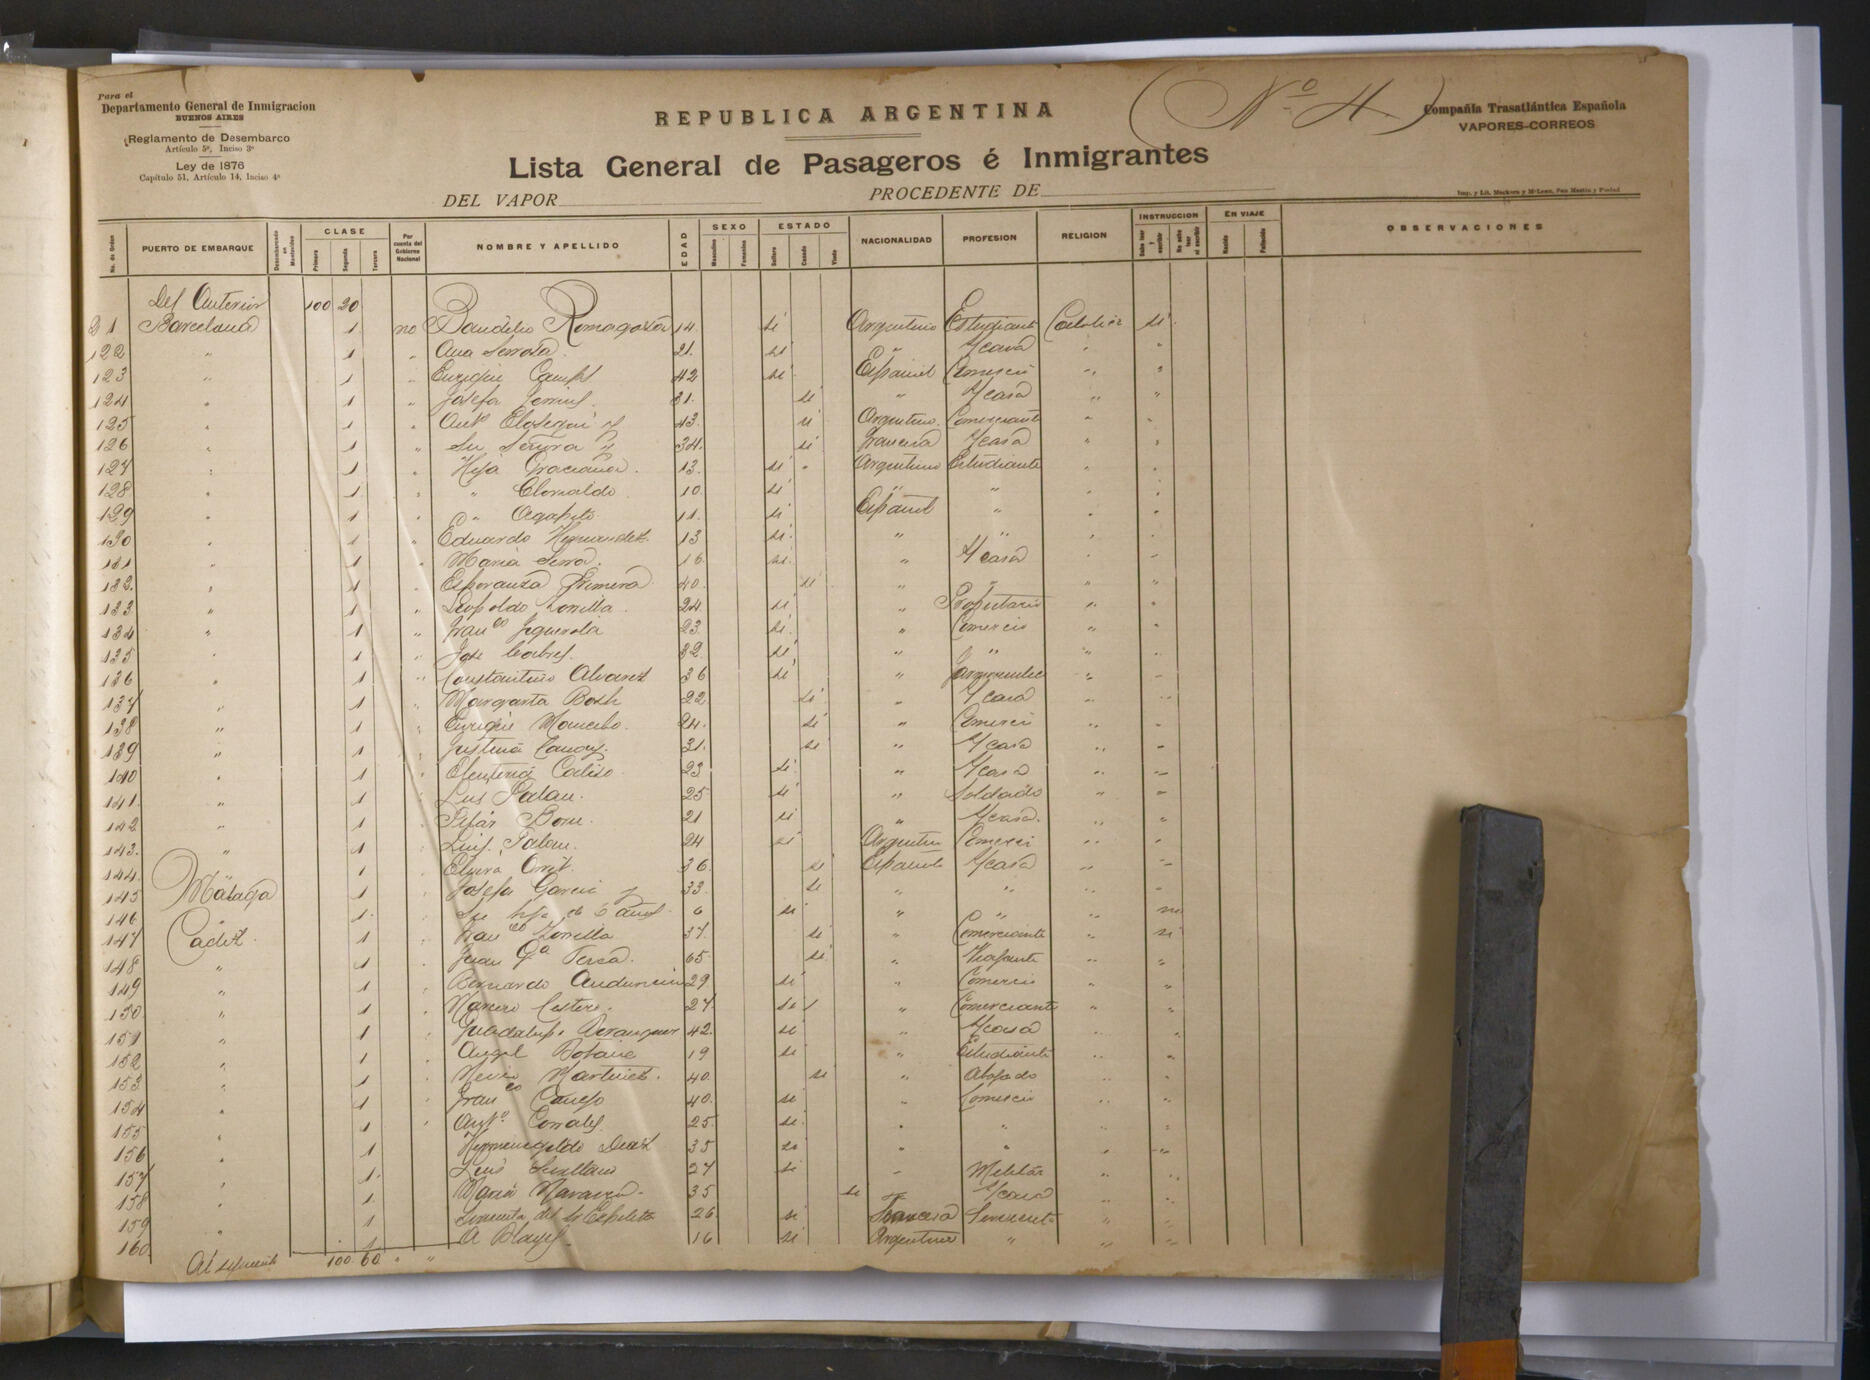 Para el
Departamento General de Inmigracion
BUENOS AIRES
Reglamento de Desembarco
Artículo 5º, Inciso 3º
Ley de 1876
Capítulo 51, Artículo 14, Inciso 4º
REPUBLICA ARGENTINA
(Nº 4)
Compañía Trasatlántica Española
VAPORES-CORREOS
Lista General de Pasageros é Inmigrantes
DEL VAPOR PROCEDENTE DE
Imp. y Lit. Mackern y McLean, San Martin y Piedad
No. de Orden PUERTO DE EMBARQUE Desembarcado en Montevideo CLASE Primera Segunda Tercera Por cuenta del Gobierno Nacional NOMBRE Y APELLIDO EDAD SEXO Masculino Femenino ESTADO Soltero Casado Viudo NACIONALIDAD PROFESION RELIGION INSTRUCCION Sabe leer y escribir No sabe leer ni escribir EN VIAJE Nacido Fallecido OBSERVACIONES
Del Anterior 100 20
21 Barcelona 1 no Baudelio Romagosa 14 si Argentino Estudiante Catolica si
122 " 1 " Ana Serrota 21. si " S/casa " "
123 " 1 " Enrique Camps 42 si Español Comercio " "
124 " 1 " Josefa 31. si " S/casa " "
125 " 1 " Antº Elosegui y 43. si Argentino Comerciante " "
126 " 1 " Su Señora y 34. si Francesa S/casa " "
127 " 1 " Hija Graciana. 13. si " Argentino Estudiante " "
128 " 1 " " Clomaldo 10. si " " " "
129 " 1 " " Agapito 11. si Español " " "
130 " 1 " Eduardo Hernandez 13 si " " " "
131 " 1 " Maria Serra. 16 si " S/casa " "
132. " 1 " Esperanza Primera 40. si " " " "
133 " 1 " Leopoldo Zorrilla 24. si " Propietario " "
134 " 1 " Franco Figuerola 23. si " Comercio " "
135 " 1 " Jose 32. si " " " "
136 " 1 " Constantino Alvarez 36 si " " "
137 " 1 " Margarita Bosch 22 si " S/casa " "
138 " 1 " Enrique Mancebo. 24. si " Comercio " "
139 " 1 " Justina 31. si " S/casa " "
140 " 1 " Calixo 23 si " S/casa " "
141. " 1 " Luis Palau. 25 si " Soldado " "
142 " 1 " Pilar Born. 21 si " S/casa. " "
143. " 1 " Luis Palau. 24 si Argentino Comercio " "
144. 1 " Elvira Ortiz. 36. si Española S/casa " "
145 Málaga 1 " Josefa Garcia y 33. si " " " "
146 " 1 " Su hijo de 6 años 6 si " " " no
147 Cadiz 1 " Franco Zorrilla 37. si " Comerciante " si
148 " 1 " Juan Ga 65. si " Viajante " "
149 " 1 " Bernardo 29 si " Comercio " "
150 " 1 " Narciso 27. si " Comerciante " "
151 " 1 " Guadalupe 42. si " S/casa " "
152 " 1 " Angel 19 si " Estudiante " "
153 " 1 " Martinez. 40. si " Abogado " "
154 " 1 " Franco 40. si " Comercio " "
155 " 1 " Antº. Corrales 25. si " " " "
156 " 1 Hermenegildo Diaz 35 si " " " "
157 " 1 Luis Sevillano 27 si " Militar " "
158 " 1 Maria Navarro. 35 si " S/casa " "
159 " 1 Sirvienta del Sr Espeleta 26. si Francesa Sirviente " "
160 1 A Blayes. 16 si Argentino " " "
Al siguiente 100 60 " "